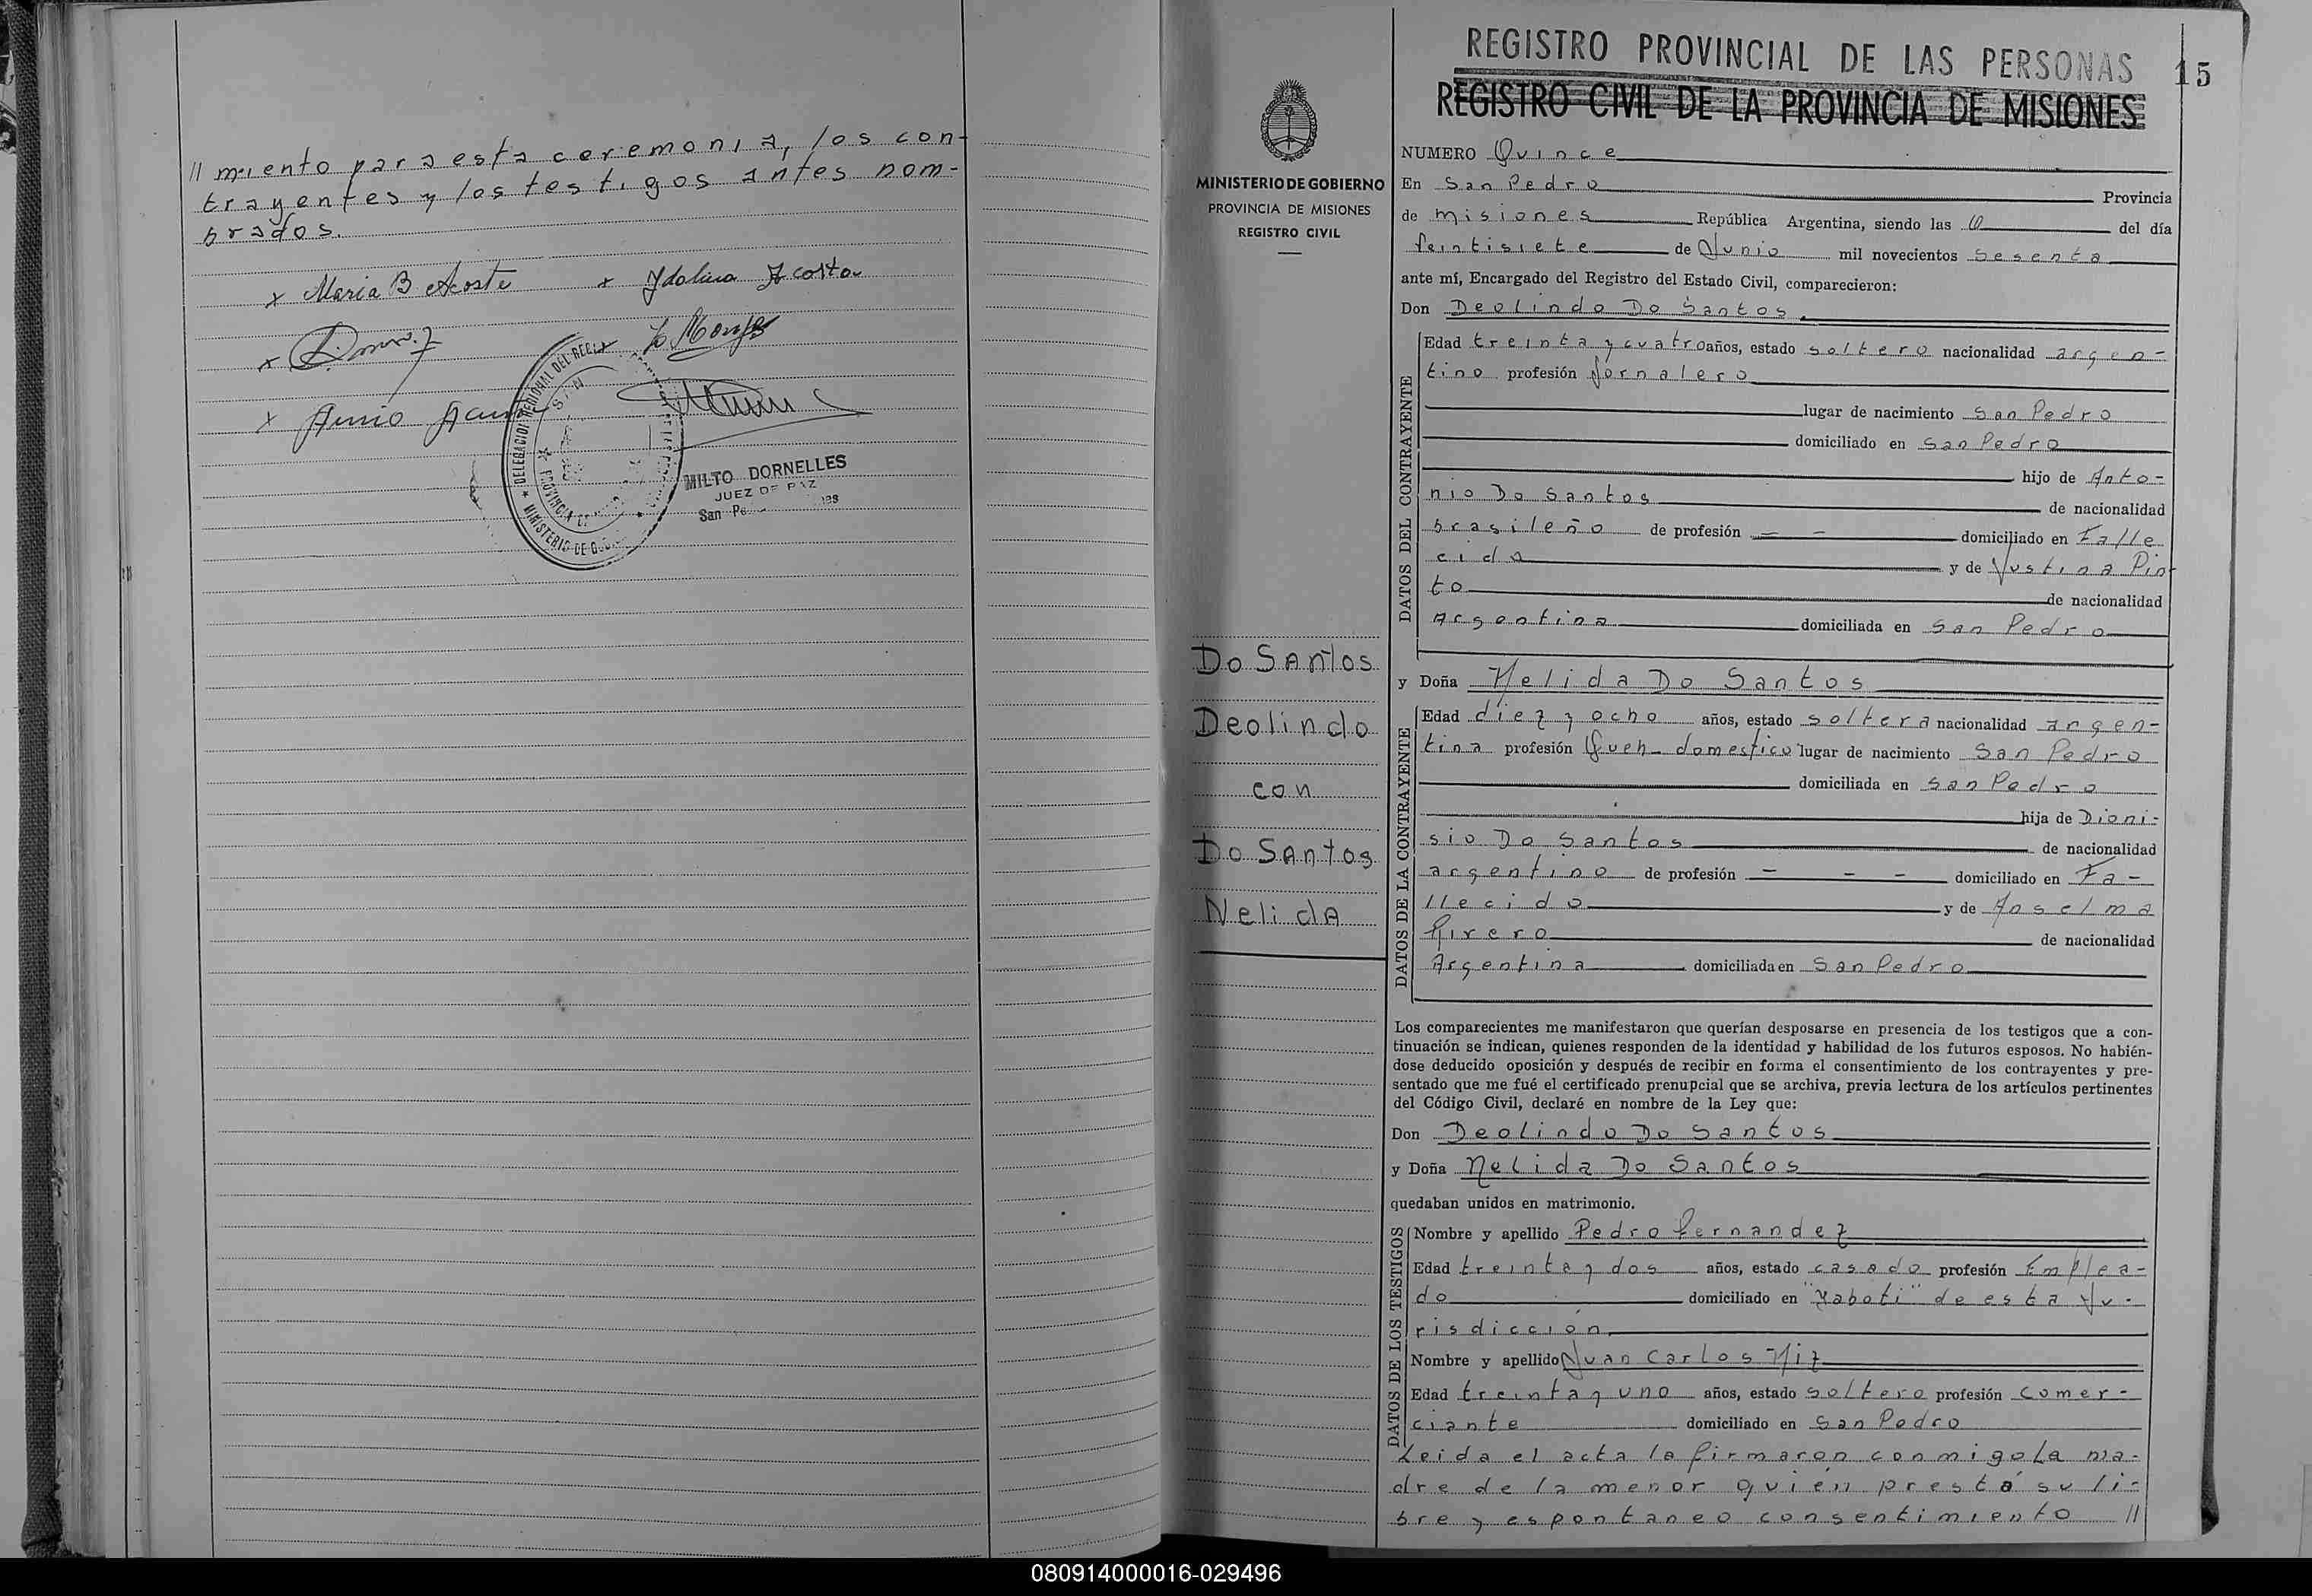 // miento para esta ceremonia, los con-
trayentes y los testigos antes nom-
brados.
x Maria B Acosta x Idalina Acosta
x
x
MINISTERIO DE
PROVINCIA DE
MILTO DORNELLES
JUEZ DE PAZ
San
MINISTERIO DE GOBIERNO
PROVINCIA DE MISIONES
REGISTRO CIVIL
Do Santos
Deolindo
con
Do Santos
Nelida
REGISTRO PROVINCIAL DE LAS PERSONAS
15
REGISTRO CIVIL DE LA PROVINCIA DE MISIONES
NUMERO Quince
En San Pedro Provincia
de misiones República Argentina, siendo las 10 del día
Veintisiete de Junio mil novecientos sesenta
ante mí, Encargado del Registro del Estado Civil, comparecieron:
Don Deolindo Do Santos.
DATOS DEL CONTRAYENTE
Edad treinta y cuatro años, estado soltero nacionalidad argen-
tino profesión Jornalero
lugar de nacimiento San Pedro
domiciliado en San Pedro
hijo de Anto-
nio Do Santos de nacionalidad
brasileño de profesión — — domiciliado en Falle
cido y de Justina Pin-
to de nacionalidad
Argentina domiciliada en San Pedro
y Doña Nelida Do Santos
DATOS DE LA CONTRAYENTE
Edad diez y ocho años, estado soltera nacionalidad argen-
tina profesión Queh- domestico lugar de nacimiento San Pedro
domiciliada en San Pedro
hija de Dioni-
sio Do Santos de nacionalidad
argentino de profesión — — — domiciliado en Fa-
llecido y de Anselma
de nacionalidad
Argentina domiciliada en San Pedro
Los comparecientes me manifestaron que querían desposarse en presencia de los testigos que a con-
tinuación se indican, quienes responden de la identidad y habilidad de los futuros esposos. No habién-
dose deducido oposición y después de recibir en forma el consentimiento de los contrayentes y pre-
sentado que me fué el certificado prenupcial que se archiva, previa lectura de los artículos pertinentes
del Código Civil, declaré en nombre de la Ley que:
Don Deolindo Do Santos
y Doña Nelida Do Santos
quedaban unidos en matrimonio.
DATOS DE LOS TESTIGOS
Nombre y apellido Pedro Fernandez
Edad treinta y dos años, estado casado profesión Emplea-
do domiciliado en "Yaboti" de esta Ju-
risdicción.
Nombre y apellido Juan Carlos Niz
Edad treinta y uno años, estado soltero profesión comer-
ciante domiciliado en San Pedro
Leida el acta la firmaron conmigo La ma-
dre de la menor quién prestó su li-
bre y espontaneo consentimiento //
080914000016-029496